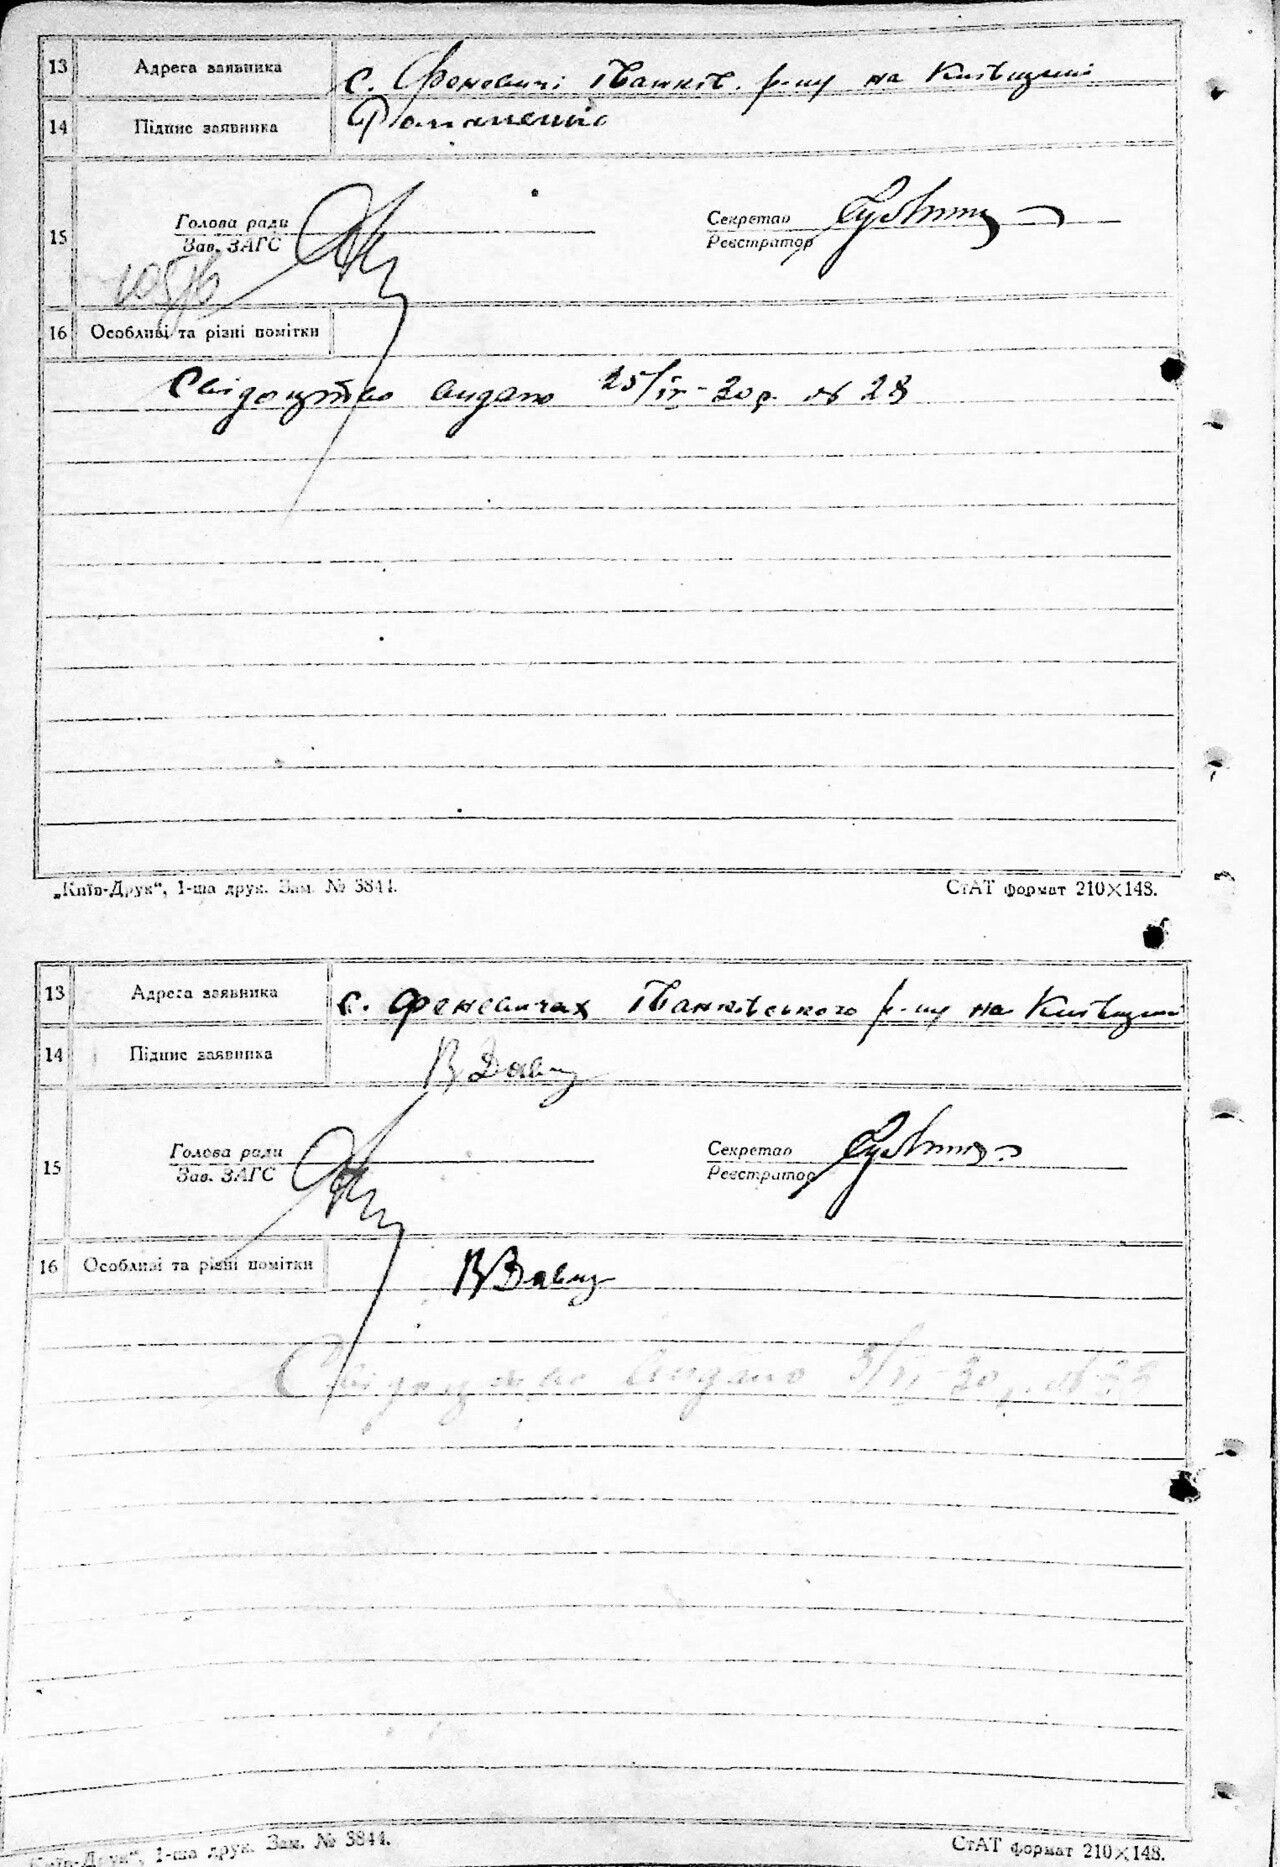 13 Адреса заявника с. Феневичі Іванків. р-ну на Київщині
14 Підпис заявника
15 Голова ради Секретар
Зав. ЗАГС Реєстратор
16 Особливі та різні помітки
Свідоцтво видано 25/IV-30р. № 28
„Київ-Друк“, 1-ша друк. Зам. № 3844. СтАТ формат 210×148.
13 Адреса заявника с. Феневичах Іванківського р-ну на Київщині
14 Підпис заявника
15 Голова ради Секретар
Зав. ЗАГС Реєстратор
16 Особливі та різні помітки
Свідоцтво видано
„Київ-Друк“, 1-ша друк. Зам. № 3844. СтАТ формат 210×148.